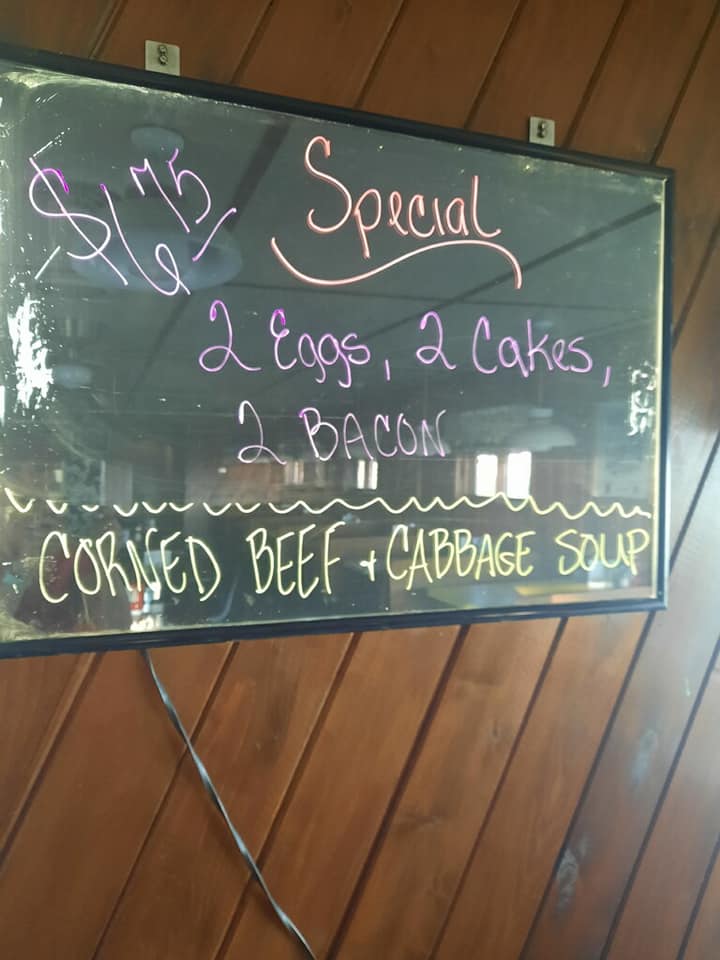 $6.75
Special
2 Eggs, 2 Cakes,
2 BACON
CORNED BEEF + CABBAGE SOUP